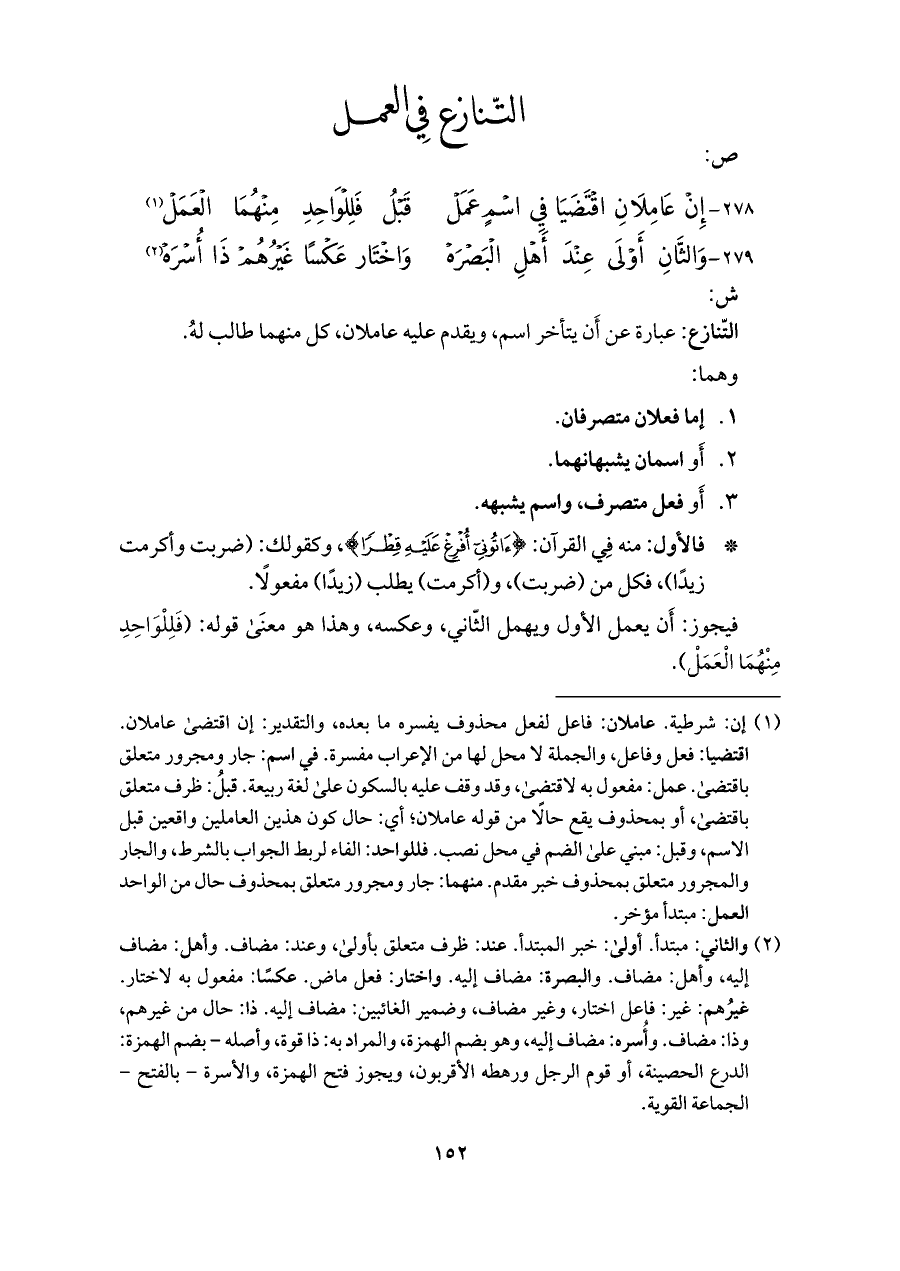 التّنازع فِي العمل
ص:
٢٧٨-إِنْ عَامِلَانِ اقْتَضَيَا فِي اسْمٍ عَمَلْ قَبْلُ فَلِلْوَاحِدِ مِنْهُمَا الْعَمَلْ(١)
٢٧٩-وَالثَّانِ أَوْلَى عِنْدَ أَهْلِ الْبَصْرَهْ وَاخْتَار عَكْسًا غَيْرُهُمْ ذَا أُسْرَهْ(٢)
ش:
التّنازع: عبارة عن أَن يتأخر اسم، ويقدم عليه عاملان، كل منهما طالب لهُ.
وهما:
١. إما فعلان متصرفان.
٢. أَو اسمان يشبهانهما.
٣. أَو فعل متصرف، واسم يشبهه.
* فالأول: منه فِي القرآن: ﴿ءَاتُونِيٓ أُفۡرِغۡ عَلَيۡهِ قِطۡرٗا﴾، وكقولك: (ضربت وأكرمت
زيدًا)، فكل من (ضربت)، و(أكرمت) يطلب (زيدًا) مفعولًا.
فيجوز: أَن يعمل الأول ويهمل الثّاني، وعكسه، وهذا هو معنَىٰ قوله: (فَلِلْوَاحِدِ
مِنْهُمَا الْعَمَلْ).
(١) إن: شرطية. عاملان: فاعل لفعل محذوف يفسره ما بعده، والتقدير: إن اقتضىٰ عاملان.
اقتضيا: فعل وفاعل، والجملة لا محل لها من الإعراب مفسرة. في اسم: جار ومجرور متعلق
باقتضىٰ. عمل: مفعول به لاقتضىٰ، وقد وقف عليه بالسكون علىٰ لغة ربيعة. قبلُ: ظرف متعلق
باقتضىٰ، أو بمحذوف يقع حالًا من قوله عاملان؛ أي: حال كون هذين العاملين واقعين قبل
الاسم، وقبل: مبني علىٰ الضم في محل نصب. فللواحد: الفاء لربط الجواب بالشرط، والجار
والمجرور متعلق بمحذوف خبر مقدم. منهما: جار ومجرور متعلق بمحذوف حال من الواحد
العمل: مبتدأ مؤخر.
(٢) والثاني: مبتدأ. أولىٰ: خبر المبتدأ. عند: ظرف متعلق بأولىٰ، وعند: مضاف. وأهل: مضاف
إليه، وأهل: مضاف. والبصرة: مضاف إليه. واختار: فعل ماض. عكسًا: مفعول به لاختار.
غيرُهم: غير: فاعل اختار، وغير مضاف، وضمير الغائبين: مضاف إليه. ذا: حال من غيرهم،
وذا: مضاف. وأُسره: مضاف إليه، وهو بضم الهمزة، والمراد به: ذا قوة، وأصله – بضم الهمزة:
الدرع الحصينة، أو قوم الرجل ورهطه الأقربون، ويجوز فتح الهمزة، والأسرة – بالفتح –
الجماعة القوية.
١٥٢